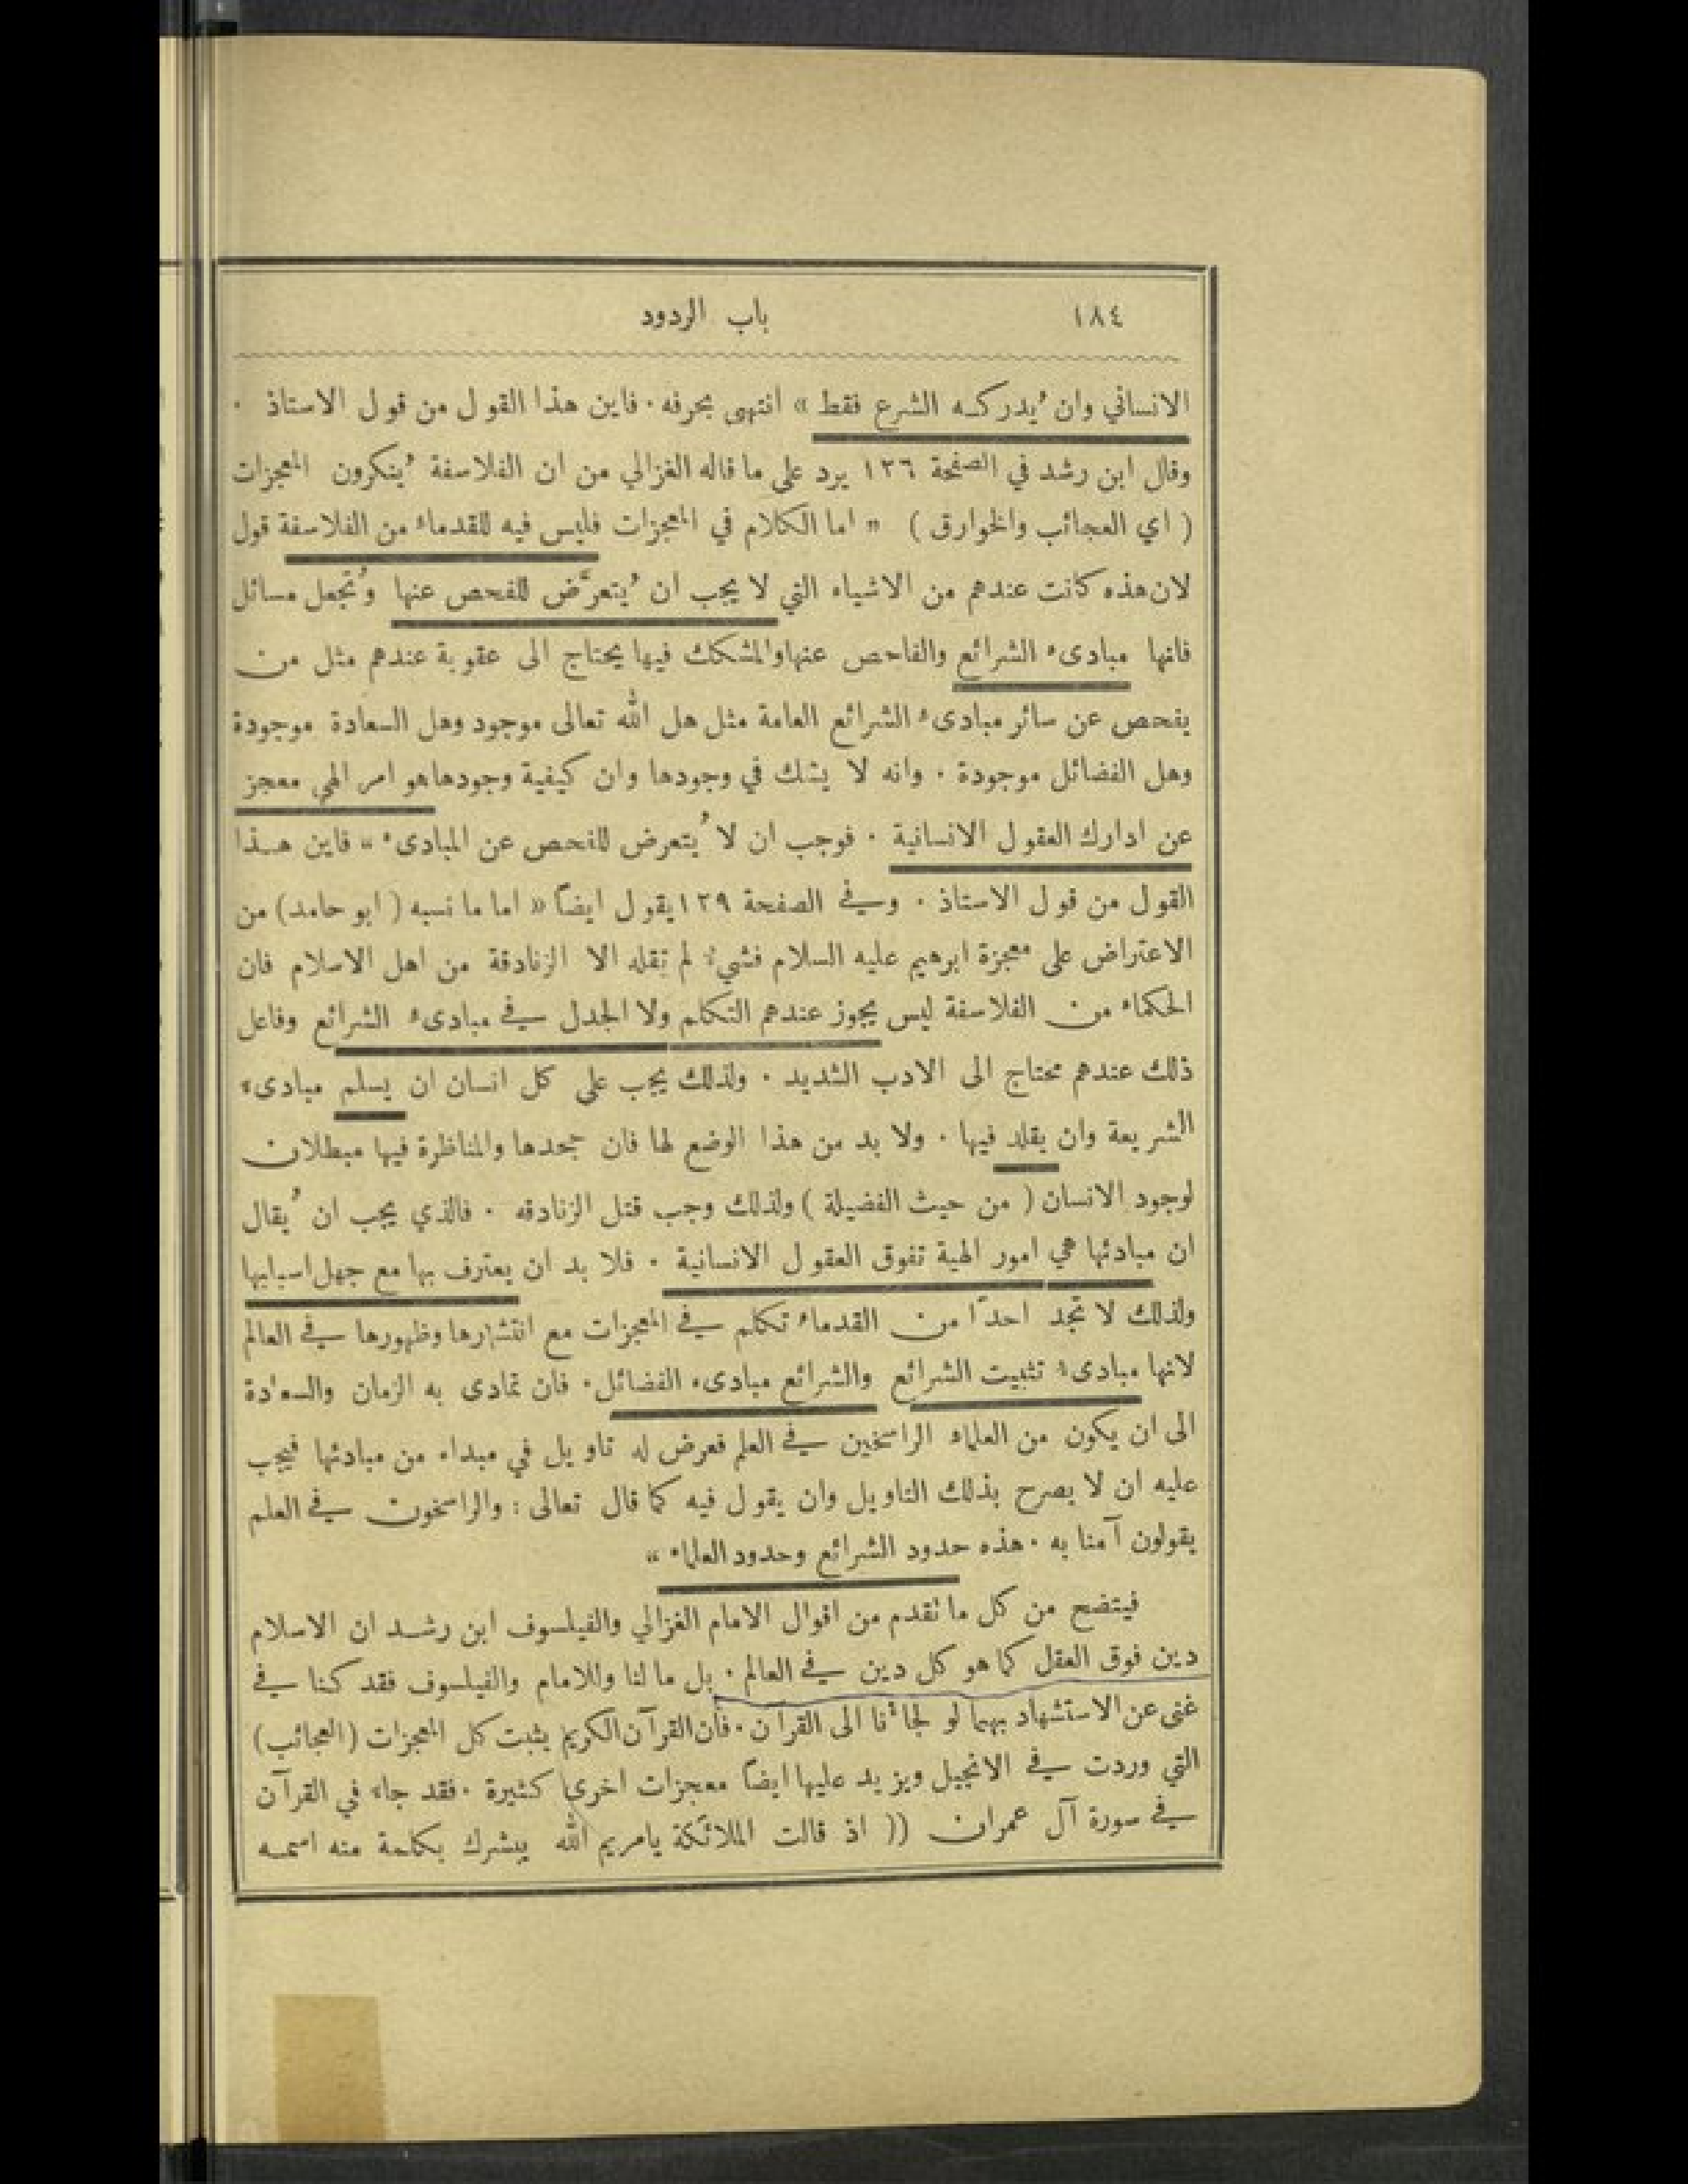 ١٨٤ باب الردود
الانساني وان ُيدركه الشرع فقط » انتهى بحرفه . فاين هذا القول من قول الاستاذ .
وقال ابن رشد في الصفحة ١٢٦ يرد على ما قاله الغزالي من ان الفلاسفة ُينكرون المعجزات
( اي العجائب والخوارق ) « اما الكلام في المعجزات فليس فيه للقدماء من الفلاسفة قول
لان هذه كانت عندهم من الاشياء التي لا يجب ان ُيتعرَّض للفحص عنها وُتجعل مسائل
فانها مبادىء الشرائع والفاحص عنها والمشكك فيها يحتاج الى عقوبة عندهم مثل من
يفحص عن سائر مبادىء الشرائع العامة مثل هل الله تعالى موجود وهل السعادة موجودة
وهل الفضائل موجودة . وانه لا يشك في وجودها وان كيفية وجودها هو امر الهي معجز
عن ادارك العقول الانسانية . فوجب ان لا ُيتعرض للفحص عن المبادىء » فاين هذا
القول من قول الاستاذ . وفي الصفحة ١٢٩ يقول ايضًا « اما ما نسبه ( ابو حامد ) من
الاعتراض على معجزة ابرهيم عليه السلام فشيءٌ لم تقله الا الزنادقة من اهل الاسلام فان
الحكماء من الفلاسفة ليس يجوز عندهم التكلم ولا الجدل في مبادىء الشرائع وفاعل
ذلك عندهم محتاج الى الادب الشديد . ولذلك يجب على كل انسان ان يسلم مبادىء
الشريعة وان يقلد فيها . ولا بد من هذا الوضع لها فان جحدها والمناظرة فيها مبطلان
لوجود الانسان ( من حيث الفضيلة ) ولذلك وجب قتل الزنادقه . فالذي يجب ان ُيقال
ان مبادئها هي امور الهية تفوق العقول الانسانية . فلا بد ان يعترف بها مع جهل اسبابها
ولذلك لا تجد احدًا من القدماء تكلم في المعجزات مع انتشارها وظهورها في العالم
لانها مبادىء تثبيت الشرائع والشرائع مبادىء الفضائل . فان تمادى به الزمان والسعادة
الى ان يكون من العلماء الراسخين في العلم فعرض له تاويل في مبداء من مبادئها فيجب
عليه ان لا يصرح بذلك التاويل وان يقول فيه كما قال تعالى : والراسخون في العلم
يقولون آمنا به . هذه حدود الشرائع وحدود العلماء »
فيتضح من كل ما تقدم من اقوال الامام الغزالي والفيلسوف ابن رشد ان الاسلام
دين فوق العقل كما هو كل دين في العالم . بل ما لنا وللامام والفيلسوف فقد كنا في
غنى عن الاستشهاد بهما لو لجأنا الى القرآن . فان القرآن الكريم يثبت كل المعجزات (العجائب)
التي وردت في الانجيل ويزيد عليها ايضًا معجزات اخرى كثيرة . فقد جاء في القرآن
في سورة آل عمران (( اذ قالت الملائكة يامريم الله يبشرك بكلمة منه اسمه